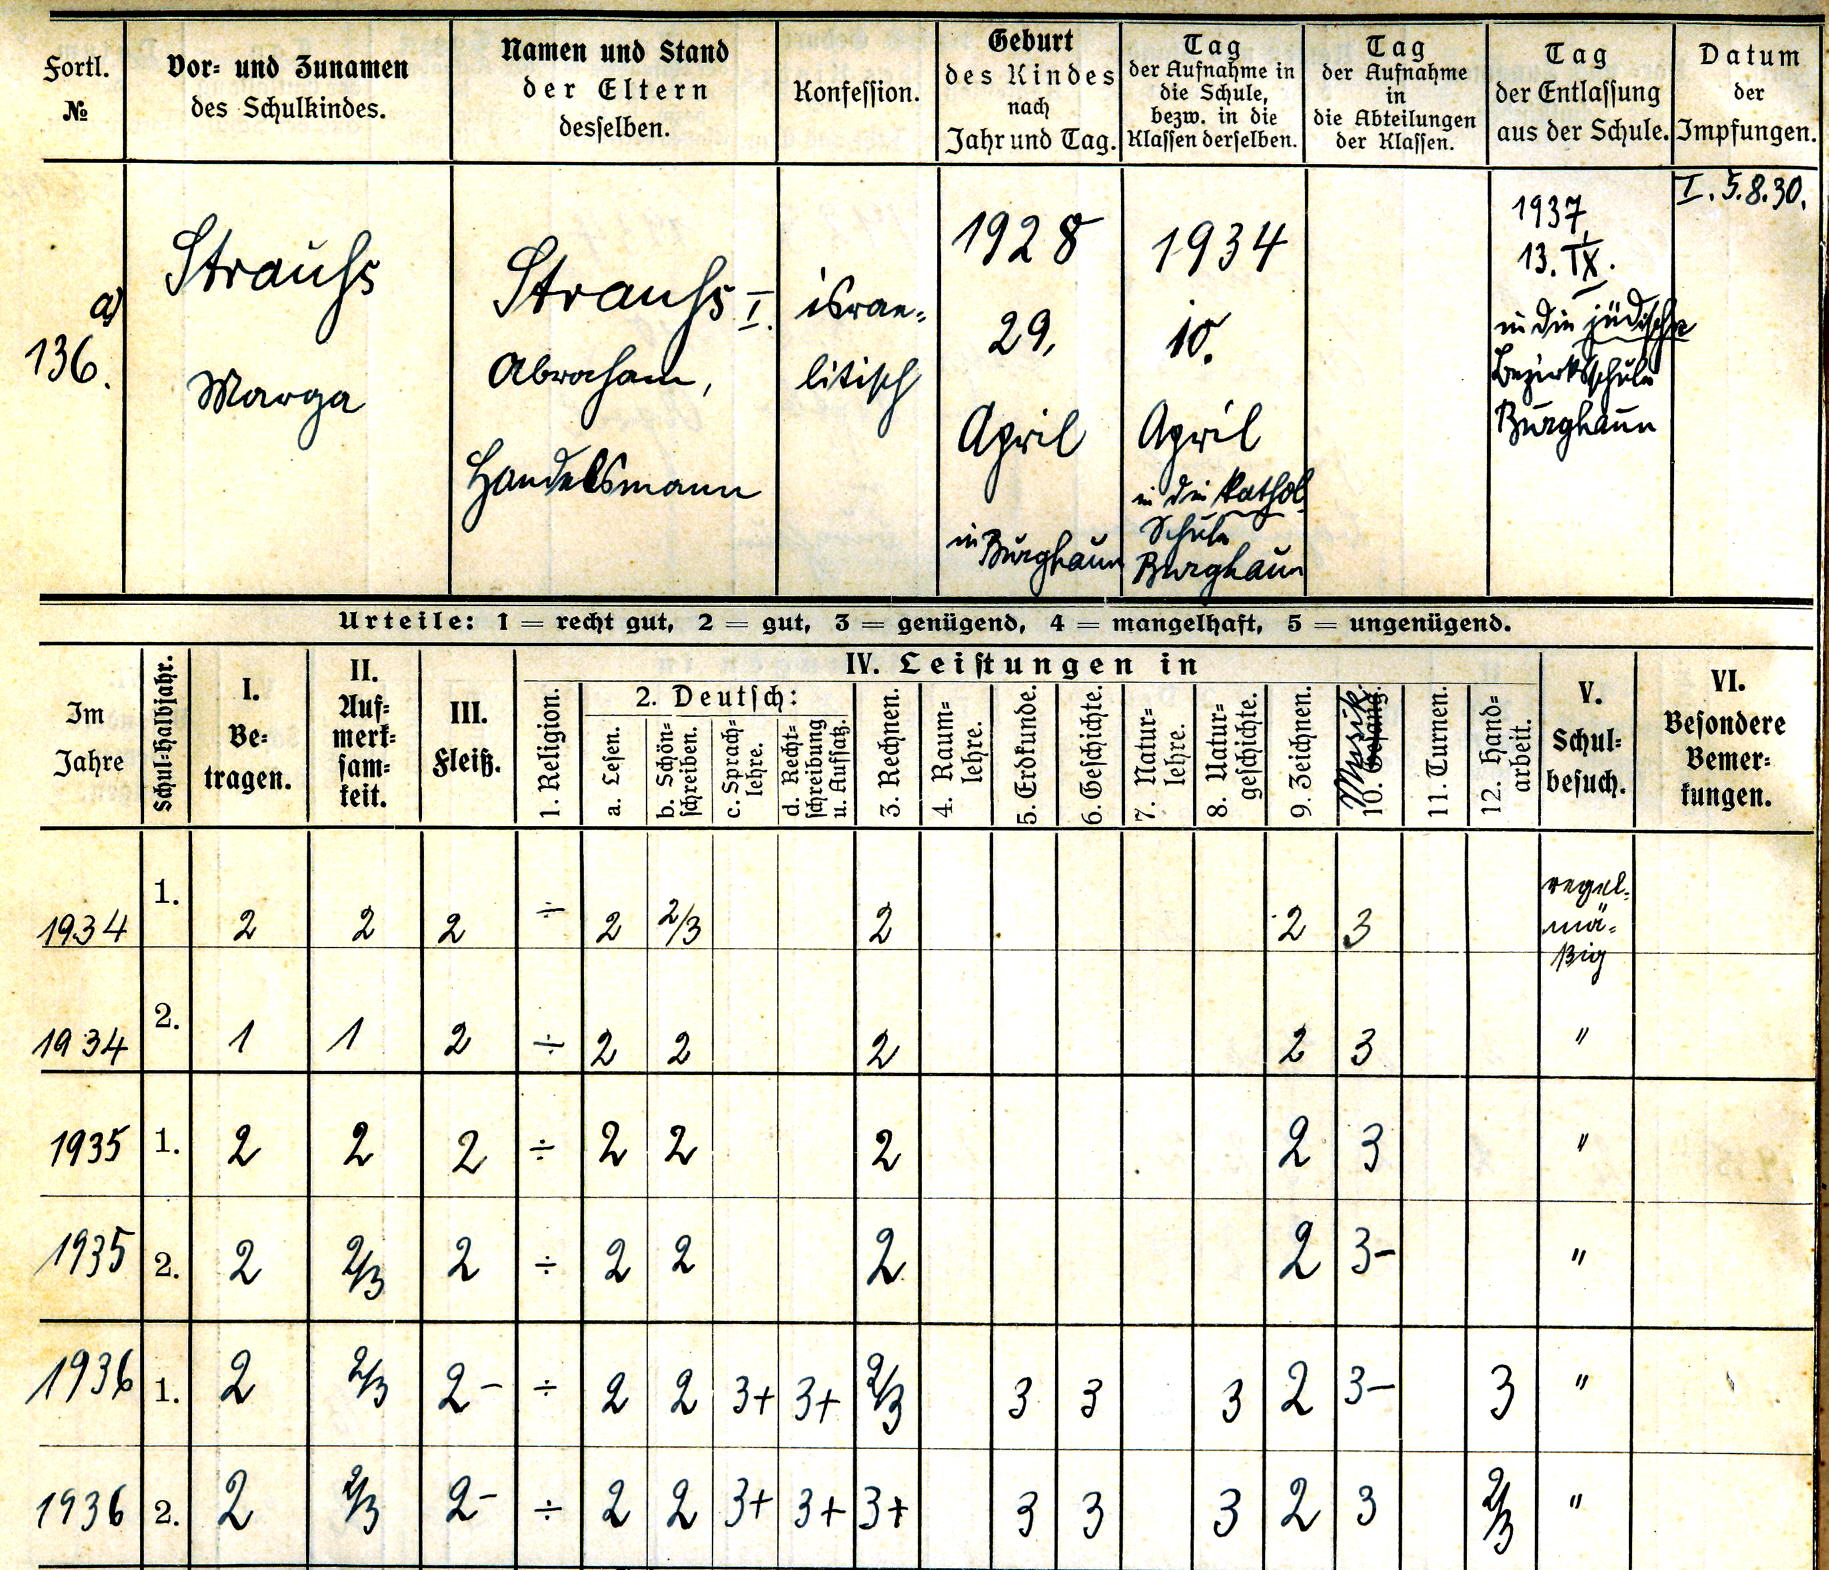 Fortl. №
Vor- und Zunamen
des Schulkindes.
Namen und Stand
der Eltern
desselben.
Konfession.
Geburt
des Kindes
nach
Jahr und Tag.
Tag
der Aufnahme in
die Schule,
bezw. in die
Klassen derselben.
Tag
der Aufnahme
in
die Abteilungen
der Klassen.
Tag
der Entlassung
aus der Schule.
Datum
der
Impfungen.
a)
136.
Strauß
Marga
Strauß I.
Abraham,
Handelsmann
israe-
litisch
1928
29.
April
in Burghaun
1934
10.
April
in die kathol.
Schule
Burghaun
1937,
13. IX.
in die jüdische
Bezirksschule
Burghaun
I. 5.8.30.
Urteile: 1 = recht gut, 2 = gut, 3 = genügend, 4 = mangelhaft, 5 = ungenügend.
Im
Jahre
Schul-Halbjahr.
I.
Be-
tragen.
II.
Auf-
merk-
sam-
keit.
III.
Fleiß.
IV. Leistungen in
1. Religion.
2. Deutsch:
a. Lesen.
b. Schön-
schreiben.
c. Sprach-
lehre.
d. Recht-
schreibung
u. Aufsatz.
3. Rechnen.
4. Raum-
lehre.
5. Erdkunde.
6. Geschichte.
7. Natur-
lehre.
8. Natur-
geschichte.
9. Zeichnen.
Musik.
10. Gesang.
11. Turnen.
12. Hand-
arbeit.
V.
Schul-
besuch.
VI.
Besondere
Bemer-
kungen.
1934 1. 2 2 2 ÷ 2 2/3 2 2 3 regel-
mä-
ßig
1934 2. 1 1 2 ÷ 2 2 2 2 3 "
1935 1. 2 2 2 ÷ 2 2 2 2 3 "
1935 2. 2 2/3 2 ÷ 2 2 2 2 3- "
1936 1. 2 2/3 2- ÷ 2 2 3+ 3+ 2/3 3 3 3 2 3- 3 "
1936 2. 2 2/3 2- ÷ 2 2 3+ 3+ 3+ 3 3 3 2 3 2/3 "